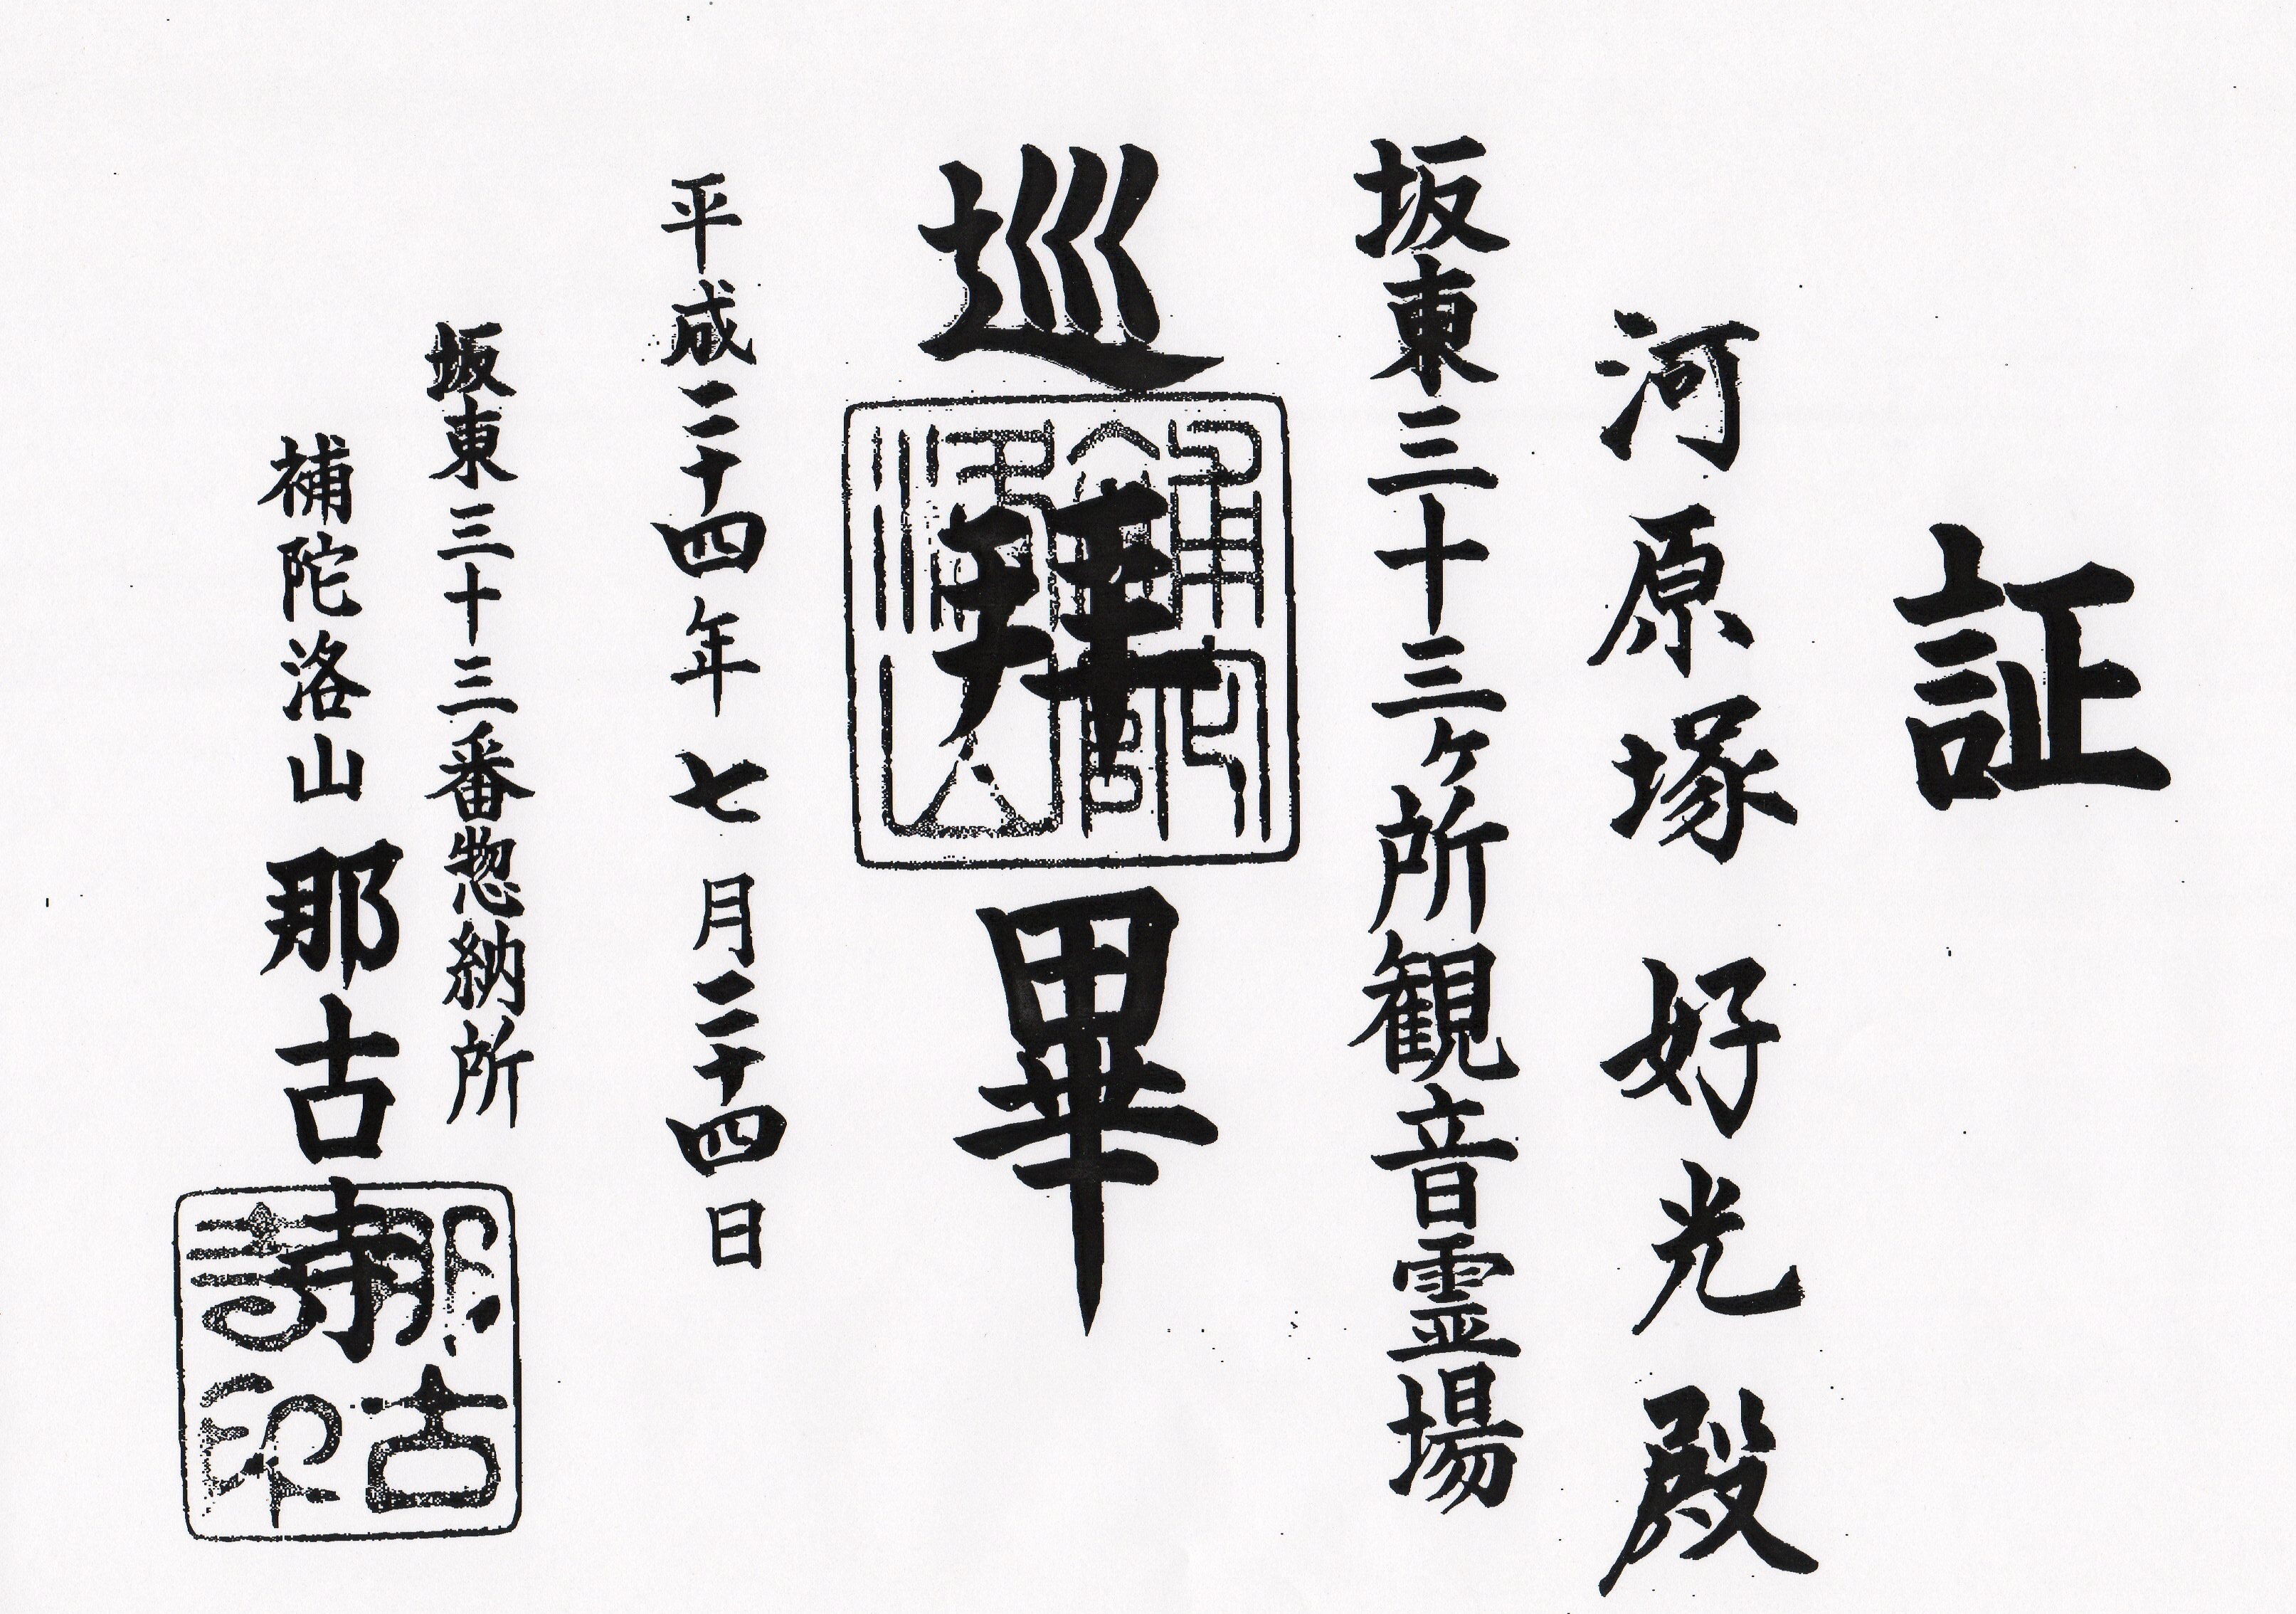 証
河原塚好光殿
坂東三十三ヶ所観音霊場
巡拝畢
平成二十四年七月二十四日
坂東三十三番惣納所
補陀洛山那古寺
那古寺印